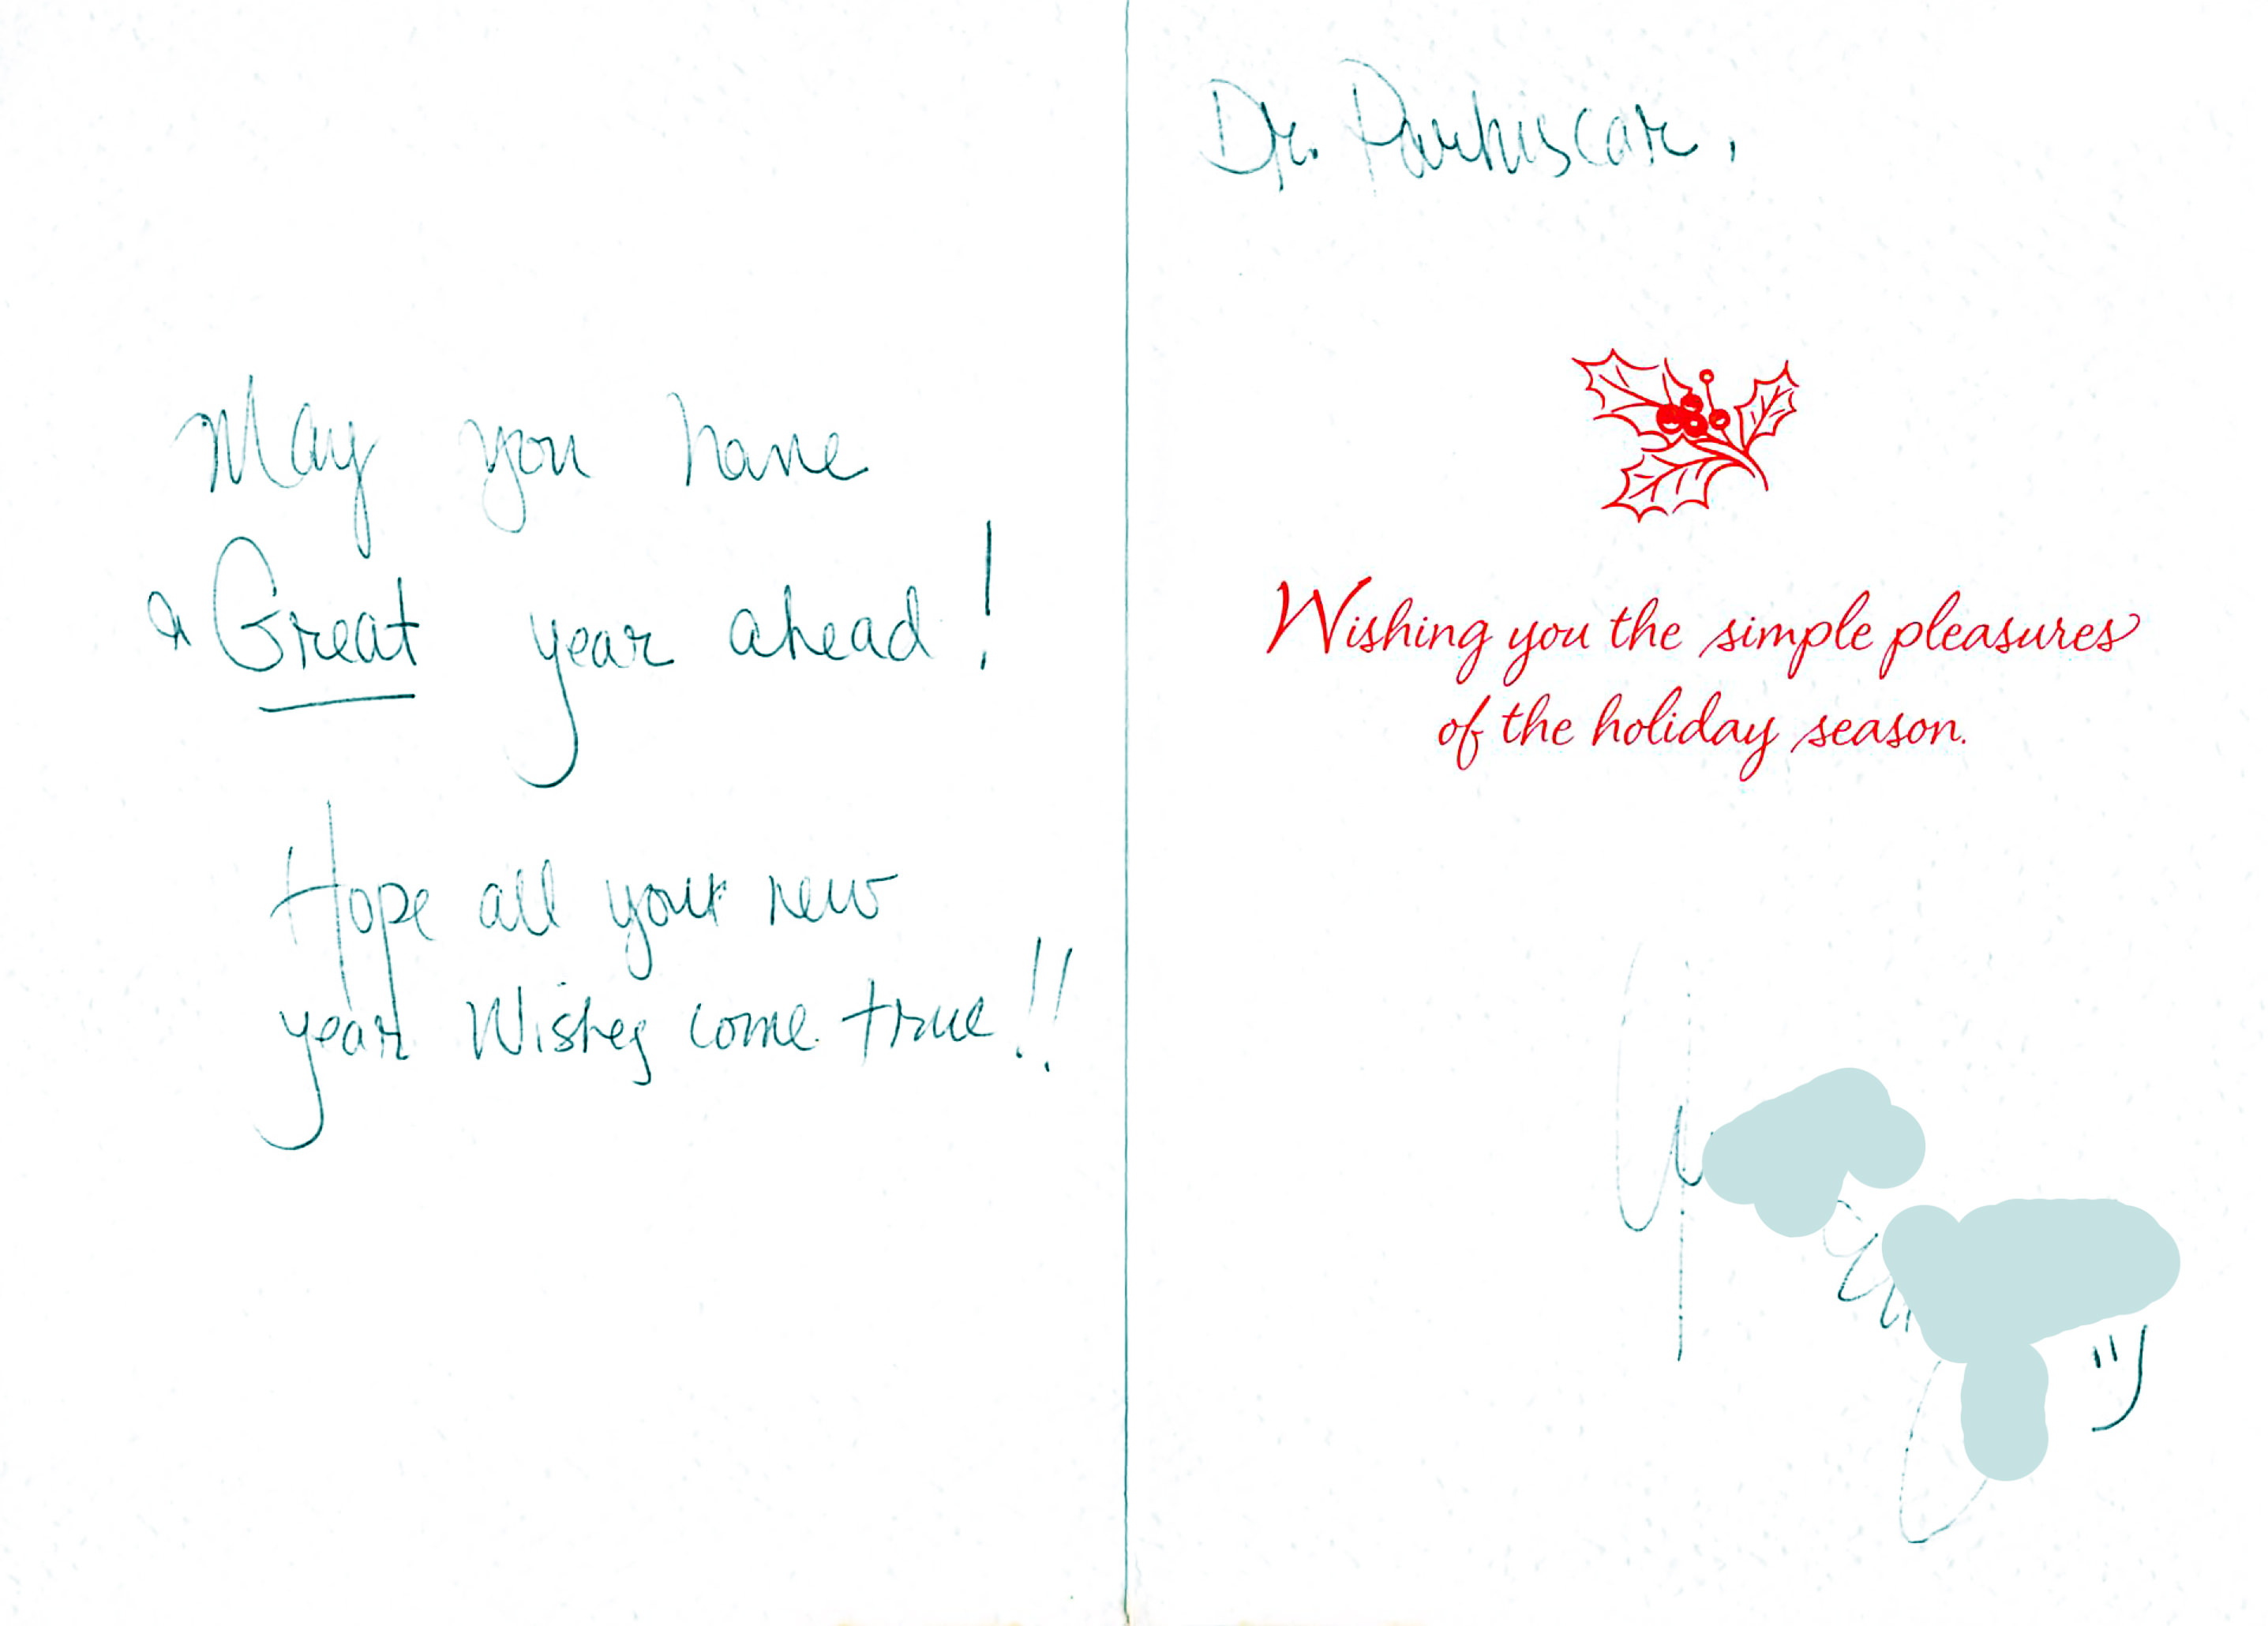 May you have
a Great year ahead!
Hope all your new
year Wishes come true!!
Dr. Parhiscar,
Wishing you the simple pleasures
of the holiday season.